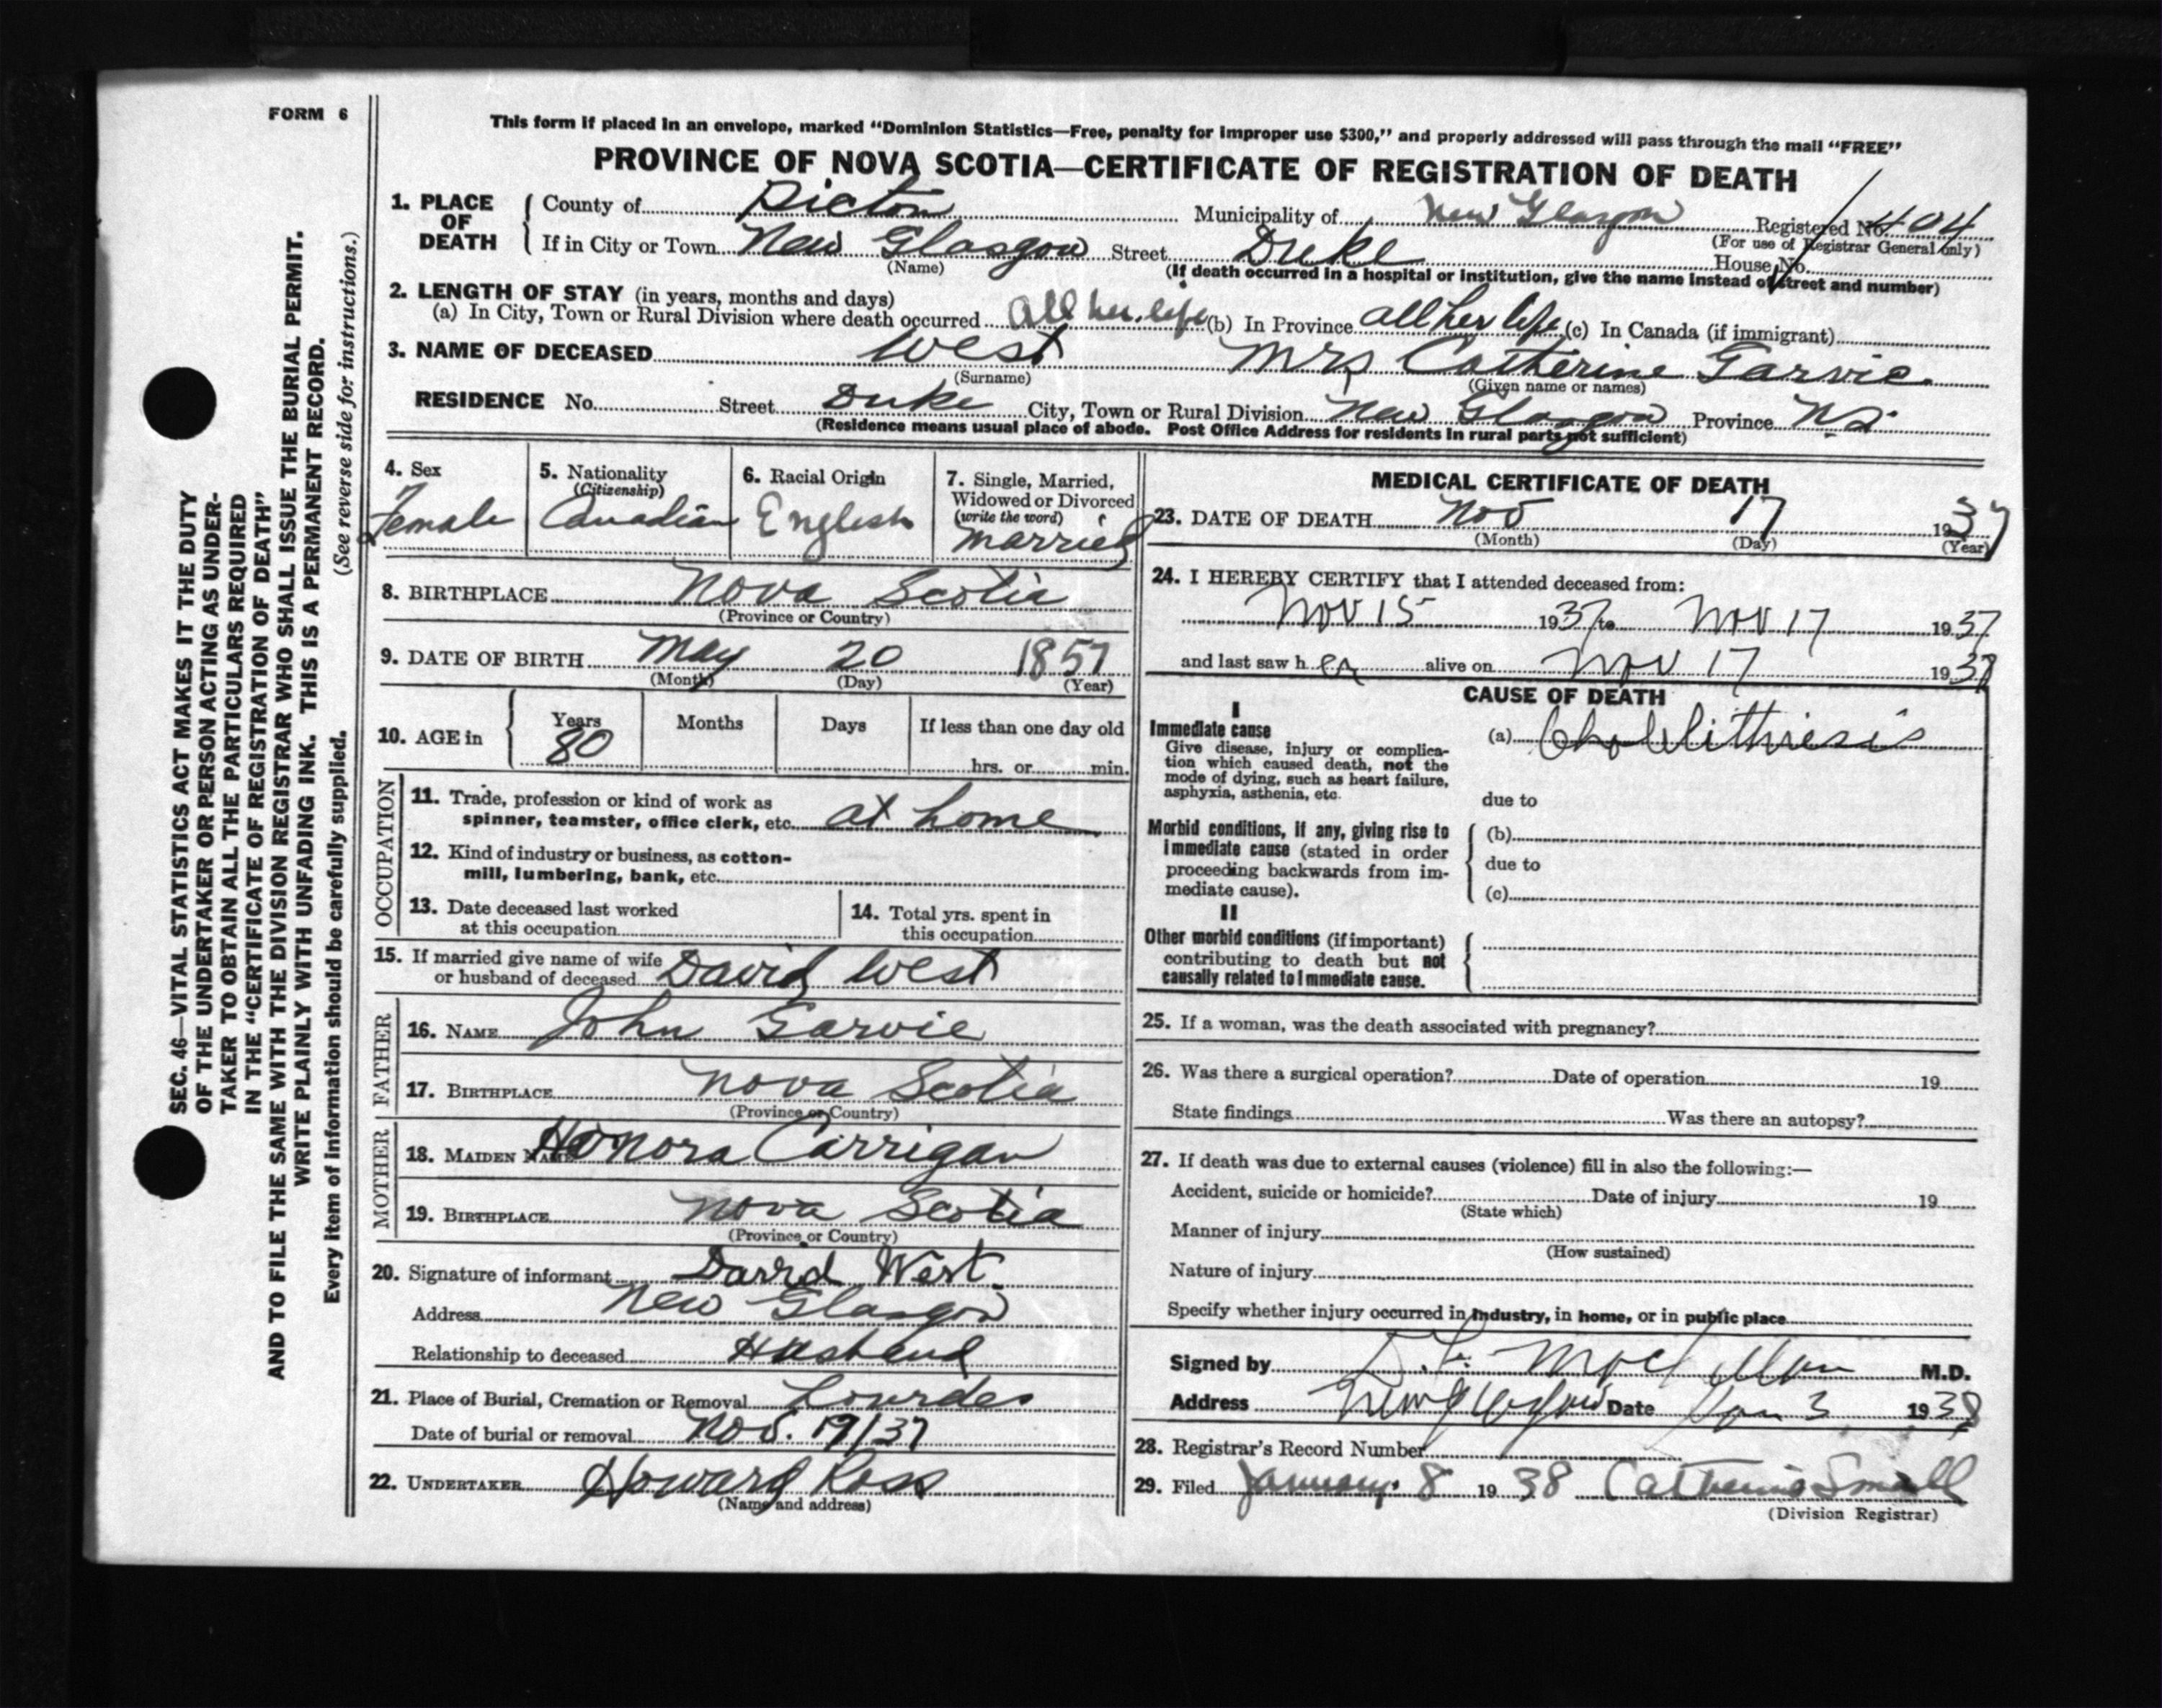 FORM 6
This form if placed in an envelope, marked "Dominion Statistics—Free, penalty for improper use $300," and properly addressed will pass through the mail "FREE"
PROVINCE OF NOVA SCOTIA—CERTIFICATE OF REGISTRATION OF DEATH
1. PLACE OF DEATH County of Pictou Municipality of New Glasgow Registered No. 404
(For use of Registrar General only)
If in City or Town New Glasgow Street Duke House No.
(Name) (If death occurred in a hospital or institution, give the name instead of street and number)
2. LENGTH OF STAY (in years, months and days)
(a) In City, Town or Rural Division where death occurred All her life (b) In Province all her life (c) In Canada (if immigrant)
3. NAME OF DECEASED West Mrs Catherine Garvie
(Surname) (Given name or names)
RESIDENCE No. Street Duke City, Town or Rural Division New Glasgow Province N.S.
(Residence means usual place of abode. Post Office Address for residents in rural parts not sufficient)
4. Sex Female
5. Nationality (Citizenship) Canadian
6. Racial Origin English
7. Single, Married, Widowed or Divorced (write the word) Married
8. BIRTHPLACE Nova Scotia
(Province or Country)
9. DATE OF BIRTH May 20 1857
(Month) (Day) (Year)
10. AGE in Years 80 Months Days If less than one day old
hrs. or min.
OCCUPATION
11. Trade, profession or kind of work as
spinner, teamster, office clerk, etc. at home
12. Kind of industry or business, as cotton-
mill, lumbering, bank, etc.
13. Date deceased last worked
at this occupation
14. Total yrs. spent in
this occupation
15. If married give name of wife
or husband of deceased David West
FATHER
16. NAME John Garvie
17. BIRTHPLACE Nova Scotia
(Province or Country)
MOTHER
18. MAIDEN NAME Honora Carrigan
19. BIRTHPLACE Nova Scotia
(Province or Country)
20. Signature of informant David West
Address New Glasgow
Relationship to deceased Husband
21. Place of Burial, Cremation or Removal Lourdes
Date of burial or removal Nov. 19/37
22. UNDERTAKER Howard Ross
(Name and address)
MEDICAL CERTIFICATE OF DEATH
23. DATE OF DEATH Nov 17 1937
(Month) (Day) (Year)
24. I HEREBY CERTIFY that I attended deceased from:
Nov 15 1937 to Nov 17 1937
and last saw her alive on Nov 17 1937
CAUSE OF DEATH
I
Immediate cause
Give disease, injury or complica-
tion which caused death, not the
mode of dying, such as heart failure,
asphyxia, asthenia, etc.
(a)
due to
Morbid conditions, if any, giving rise to
immediate cause (stated in order
proceeding backwards from im-
mediate cause).
(b)
due to
(c)
II
Other morbid conditions (if important)
contributing to death but not
causally related to immediate cause.
25. If a woman, was the death associated with pregnancy?
26. Was there a surgical operation? Date of operation 19
State findings Was there an autopsy?
27. If death was due to external causes (violence) fill in also the following:—
Accident, suicide or homicide? Date of injury 19
(State which)
Manner of injury
(How sustained)
Nature of injury
Specify whether injury occurred in industry, in home, or in public place
Signed by M.D.
Address New Glasgow Date Jan 3 1938
28. Registrar's Record Number
29. Filed January 8 1938 Catherine Small
(Division Registrar)
SEC. 46—VITAL STATISTICS ACT MAKES IT THE DUTY
OF THE UNDERTAKER OR PERSON ACTING AS UNDER-
TAKER TO OBTAIN ALL THE PARTICULARS REQUIRED
IN THE "CERTIFICATE OF REGISTRATION OF DEATH"
AND TO FILE THE SAME WITH THE DIVISION REGISTRAR WHO SHALL ISSUE THE BURIAL PERMIT.
WRITE PLAINLY WITH UNFADING INK. THIS IS A PERMANENT RECORD.
Every item of information should be carefully supplied. (See reverse side for instructions.)